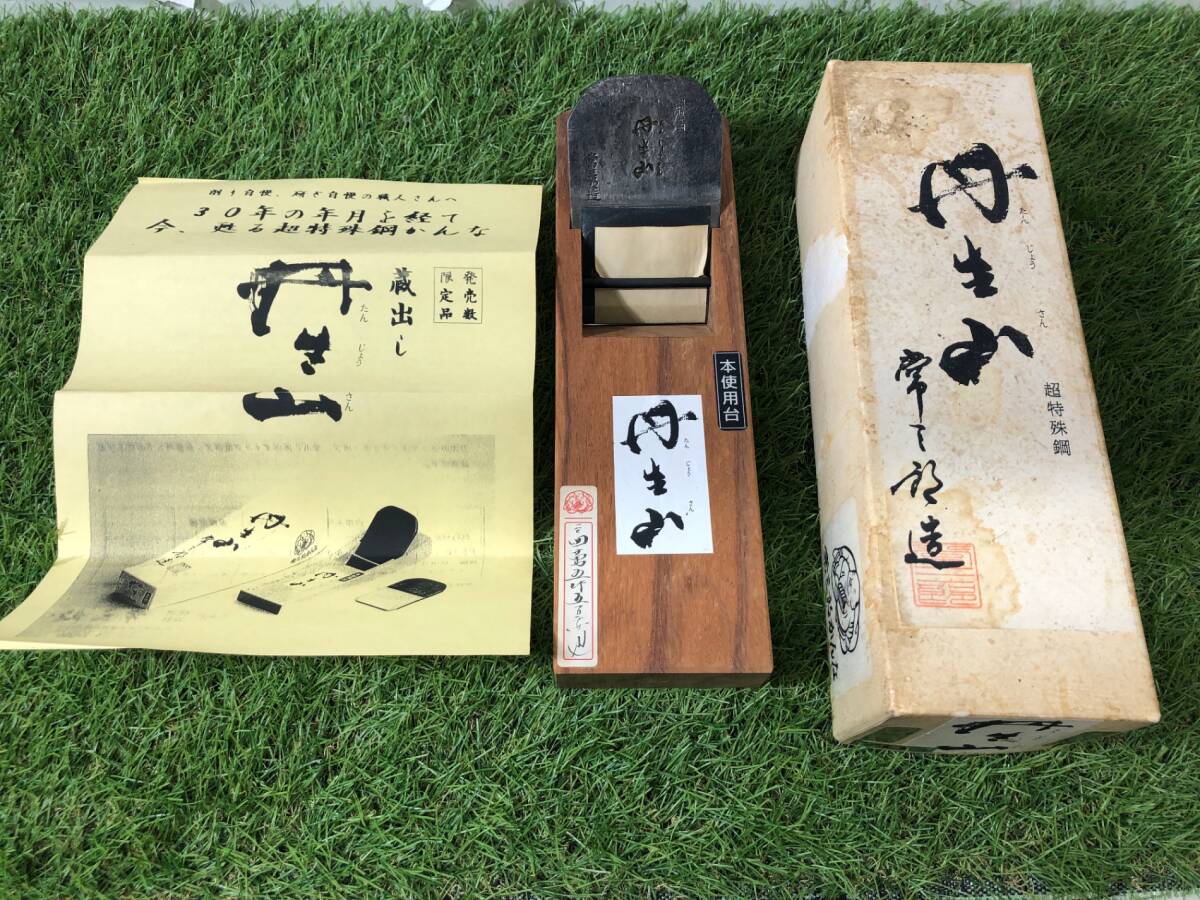 削り自慢、研ぎ自慢の職人さんへ
30年の年月を経て
今、甦る超特殊鋼かんな
発売数
限定品
蔵出し
丹生山
たん
じょう
さん
丹生山
本使用台
丹生山
たん
じょう
さん
丹生山
たん
じょう
さん
超特殊鋼
常三郎造
丹生山